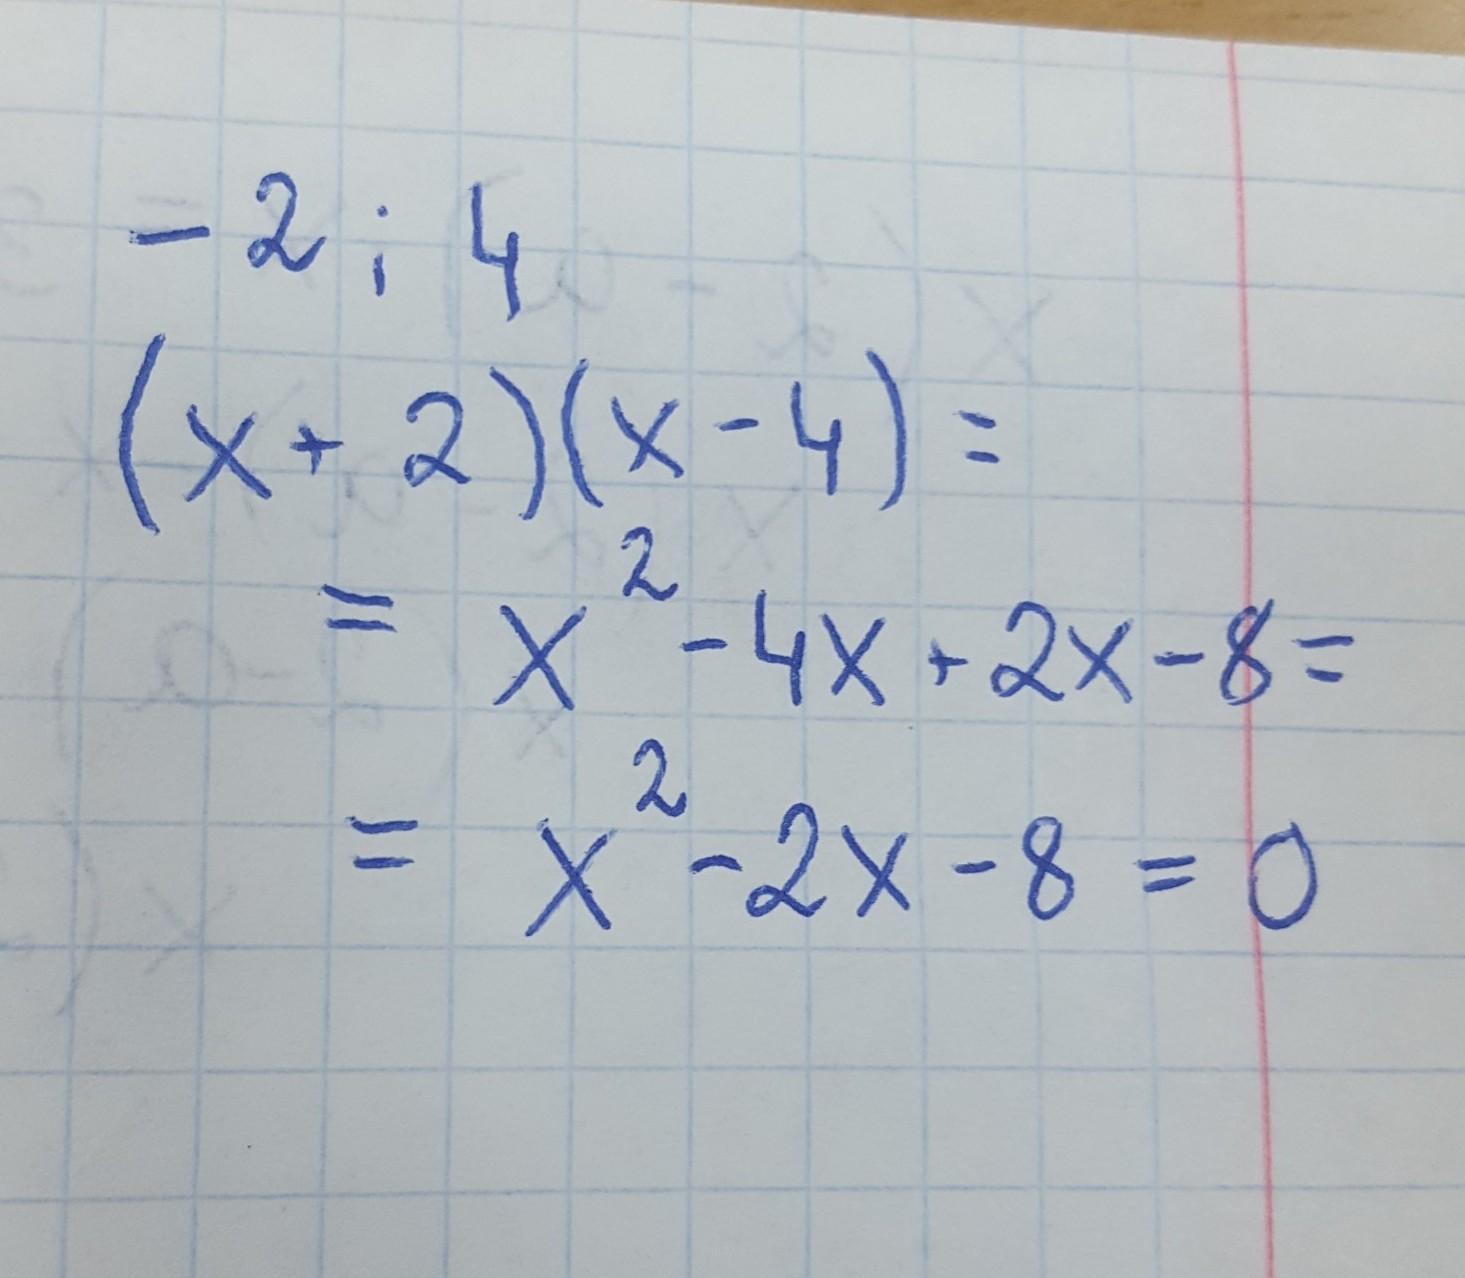 -2; 4
(x+2)(x-4)=
= x²-4x+2x-8=
= x²-2x-8=0